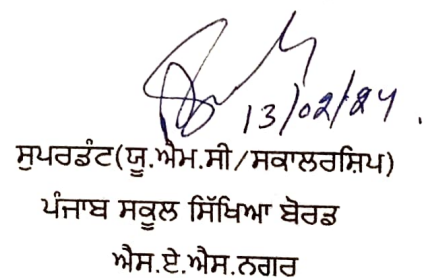 13/02/24.
ਸੁਪਰਡੰਟ(ਯੂ.ਐਮ.ਸੀ/ਸਕਾਲਰਸ਼ਿਪ)
ਪੰਜਾਬ ਸਕੂਲ ਸਿੱਖਿਆ ਬੋਰਡ
ਐਸ.ਏ.ਐਸ.ਨਗਰ